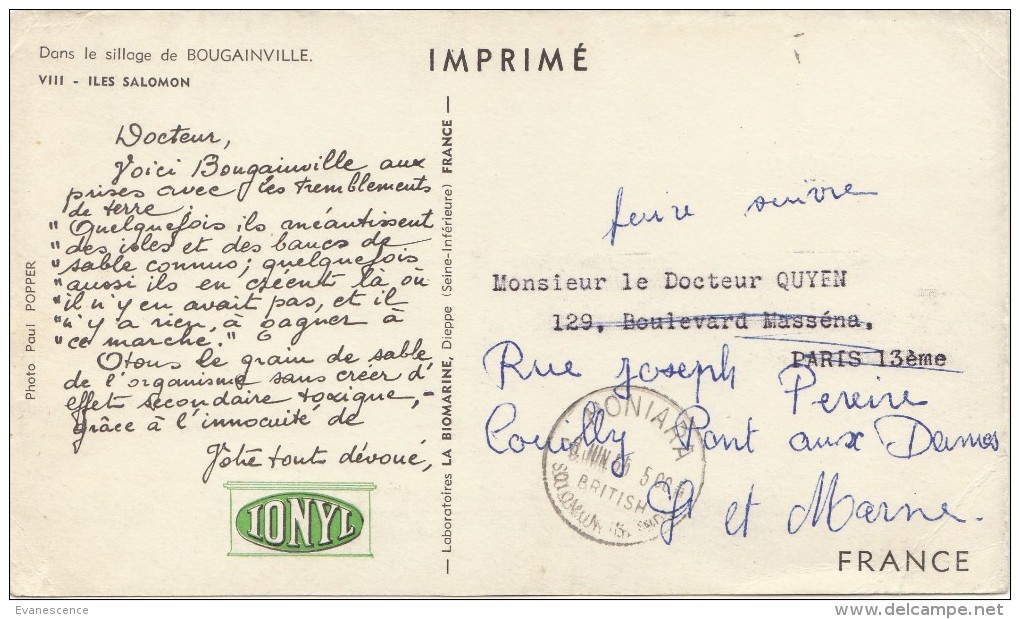 Dans le sillage de BOUGAINVILLE.
VIII - ILES SALOMON
Docteur,
Voici Bougainville aux
prises avec les tremblements
de terre :
"Quelquefois ils anéantissent
"des isles et des bancs de
"sable connus; quelquefois
"aussi ils en créent là où
"il n'y en avait pas, et il
"n'y a rien, à gagner à
"ce marché."
Otons le grain de sable
de l'organisme sans créer d'
effet secondaire toxique,-
grâce à l'innocuité de
Votre tout dévoué,
IONYL
Photo Paul POPPER
Laboratoires LA BIOMARINE, Dieppe (Seine-Inférieure) FRANCE
IMPRIMÉ
suivre
Monsieur le Docteur QUYEN
129, Boulevard Masséna,
PARIS 13ème
Rue Joseph Pereire
Couilly Pont aux Dames
S et Marne.
FRANCE
HONIARA
JUN 5
BRITISH
SOLOMON IS.
Evanescence
www.delcampe.net